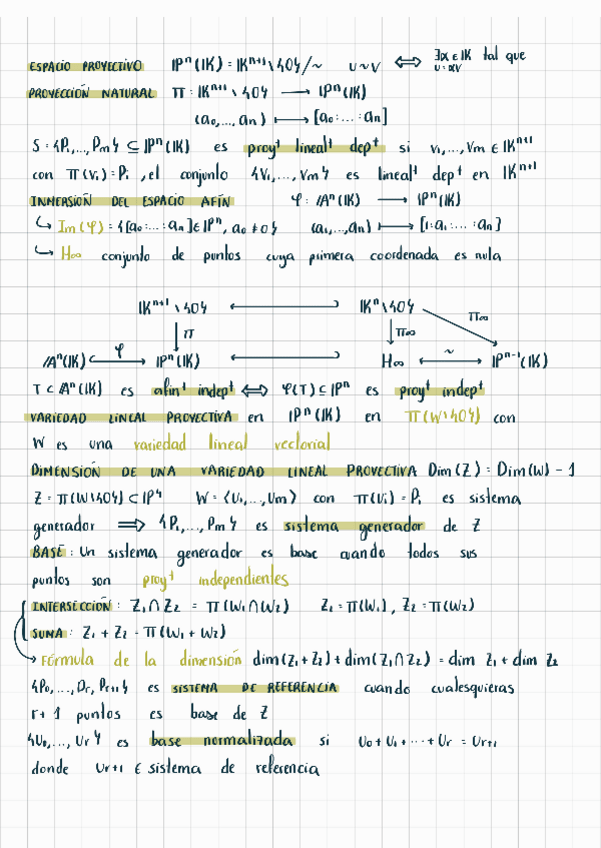 ESPACIO PROYECTIVO IPⁿ(IK) = IKⁿ⁺¹\{0}/~ u~v ⟺ ∃α∈IK tal que u=αv
PROYECCIÓN NATURAL π: IKⁿ⁺¹\{0} ⟶ IPⁿ(IK)
(a₀,...,aₙ) ⟼ [a₀:...:aₙ]
S = {P₁,...,Pₘ} ⊆ IPⁿ(IK) es proyᵗ linealᵗ depᵗ si v₁,...,vₘ ∈ IKⁿ⁺¹
con π(vᵢ) = Pᵢ, el conjunto {v₁,...,vₘ} es linealᵗ depᵗ en IKⁿ⁺¹
INMERSIÓN DEL ESPACIO AFÍN φ: Aⁿ(IK) ⟶ IPⁿ(IK)
↳ Im(φ) = {[a₀:...:aₙ]∈IPⁿ, a₀≠0} (a₁,...,aₙ) ⟼ [1:a₁:...:aₙ]
↳ H∞ conjunto de puntos cuya primera coordenada es nula
IKⁿ⁺¹\{0} ⟵ IKⁿ\{0}
π π∞ π∞
Aⁿ(IK) φ IPⁿ(IK) ⟵ H∞ ⟷ ~ IPⁿ⁻¹(IK)
T ⊂ Aⁿ(IK) es afínᵗ indepᵗ ⟺ φ(T) ⊆ IPⁿ es proyᵗ indepᵗ
VARIEDAD LINEAL PROYECTIVA en IPⁿ(IK) en π(W\{0}) con
W es una variedad lineal vectorial
DIMENSIÓN DE UNA VARIEDAD LINEAL PROYECTIVA Dim(Z) = Dim(W) - 1
Z = π(W\{0}) ⊂ IPⁿ W = ⟨v₁,...,vₘ⟩ con π(vᵢ) = Pᵢ es sistema
generador ⟹ {P₁,...,Pₘ} es sistema generador de Z
BASE: Un sistema generador es base cuando todos sus
puntos son proyᵗ independientes
INTERSECCIÓN: Z₁∩Z₂ = π(W₁∩W₂) Z₁=π(W₁), Z₂=π(W₂)
SUMA: Z₁ + Z₂ = π(W₁ + W₂)
Fórmula de la dimensión dim(Z₁+Z₂) + dim(Z₁∩Z₂) = dim Z₁ + dim Z₂
{P₀,...,Pᵣ, Pᵣ₊₁} es SISTEMA DE REFERENCIA cuando cualesquieras
r+1 puntos es base de Z
{U₀,...,Uᵣ} es base normalizada si U₀ + U₁ + ... + Uᵣ = Uᵣ₊₁
donde Uᵣ₊₁ ∈ sistema de referencia